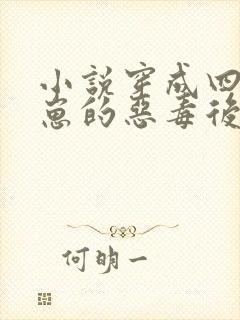 小說穿成四
崽的惡毒後
何明一